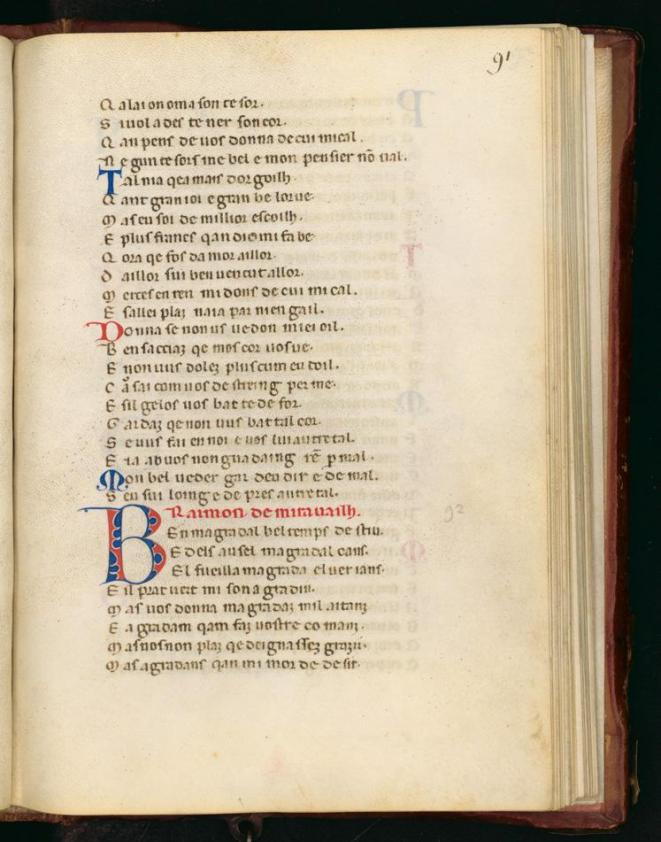 91
Q alai on om a son tesor.
S iuol ades tener son cor.
Q an pens de uos donna de cui mi cal.
N egun tesors me bel e mon pensier nō ual.
T al ma qea mais dorgoilh
Q ant gran ioi e gran be lor ue
M as eu soi de millior escoilh.
E plus francs qan dieu mi fa be
Q ora qe fos da mor aillor.
O aillor sui ben uencut allor.
M erces en ren midons de cui mi cal.
E sallei plaz naia par mengail.
D onna se non us uedon miei oil.
B en sacciaz qe mos cor uos ue.
E non uus dolez plus cum eu doil.
C ā sai com uos destreing per me.
E sil gelos uos bat tede for.
G ardaz qe non uus bat tal cor.
S e uus fai ennoi e uos lui autretal.
E ia ab uos non guadaing rē p mal.
M on bel ueder gar deu dire de mal.
S eu sui loing e de pres autretal.
Raimon de mirauailh.
B En magradal bel temps de stiu.
E dels ausel magradal cans.
El fueilla magrada el uerians.
E il prat uert mi son agradiu.
M as uos donna magradaz mil aitanz
E agradam qam faz uostre comanz.
M as uos non plaz qe deignassez graziz.
M as agradans qan mi mor de desir.
92